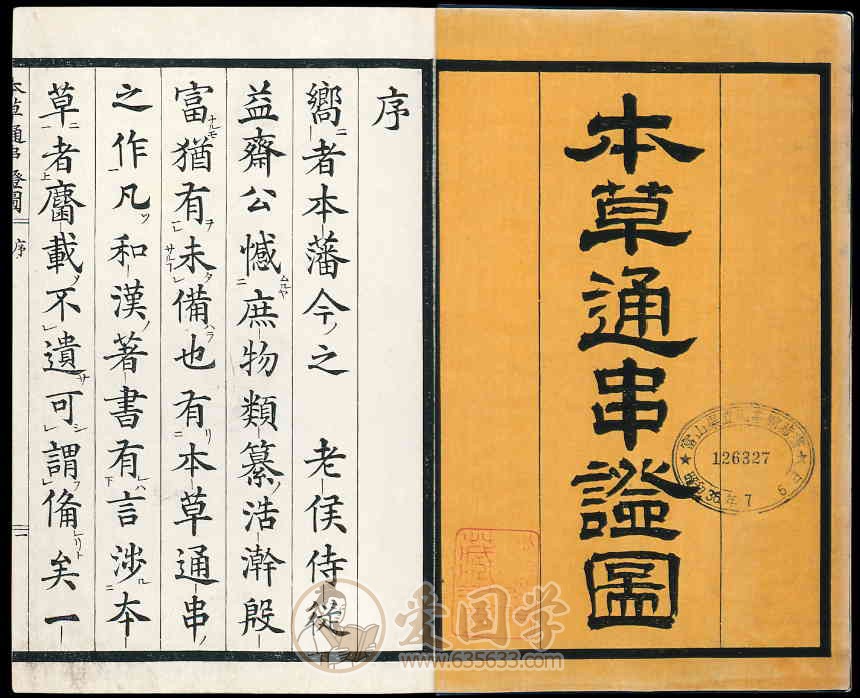 本草通串證圖
126327
序
嚮者本藩今之 老侯侍從
益齋公憾庶物類纂浩瀚殷
富猶有未備也有本草通串
之作凡和漢著書有言涉本
草者麕載不遺可謂備矣一
本草通串證圖 序
爱国学
www.635633.com